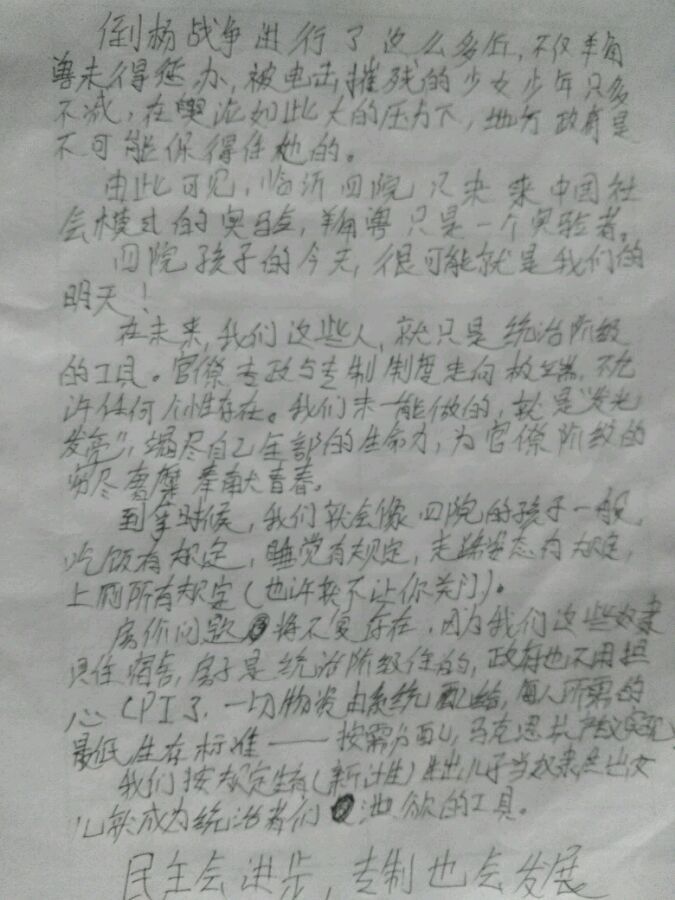 倒杨战争进行了这么多后，不仅羊角
兽未得惩办，被电击，摧残的少女少年只多
不减，在舆论如此大的压力下，地方政府是
不可能保得住他的。
由此可见，临沂四院只未来中国社
会模式的实验，羊角兽只是一个实验者。
四院孩子的今天，很可能就是我们的
明天！
在未来，我们这些人，就只是统治阶级
的工具。官僚专政与专制制度走向极端，不允
许任何个性存在。我们未一能做的，就是"发光
发亮"，竭尽自己全部的生命力，为官僚阶级的
穷尽奢糜奉献青春。
到拿时候，我们就会像四院的孩子一般，
吃饭有规定，睡觉有规定，走路姿态有规定，
上厕所有规定（也许换不让你关门）。
房价问题将不复存在，因为我们这些奴隶
只住宿舍，房子是统治阶级住的，政府也不用担
心CPI了，一切物资由系统配给，每人所需的
最低生存标准——按需分配，马克思共产主义实现
我们按规定生育（新计生）生出儿子当奴隶生出女
儿就成为统治者们泄欲的工具。
民主会进步，专制也会发展